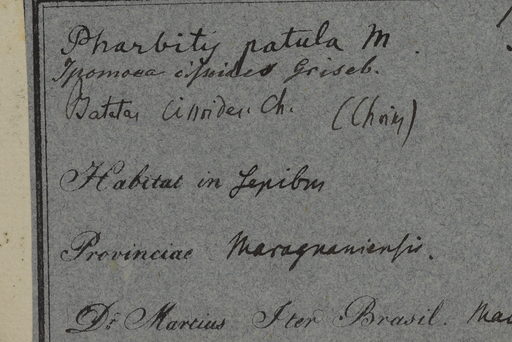 Pharbitis patula M
Ipomoea cissoides Griseb.
Batatas cissoides. Ch. (Choisy)
Habitat in Sepibus
Provinciae Maragnaniensis.
Dr. Martius Iter Brasil.